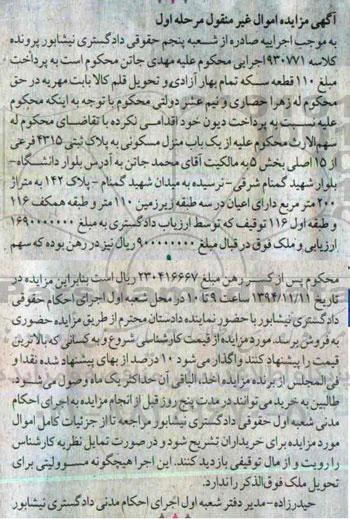 آگهی مزایده اموال غیر منقول مرحله اول
به موجب اجراییه صادره از شعبه پنجم حقوقی دادگستری نیشابور پرونده
کلاسه ۹۳۰۷۷۱ اجرایی محکوم علیه مهدی جاتن محکوم است به پرداخت
مبلغ ۱۱۰ قطعه سکه تمام بهار آزادی و تحویل قلم کالا بابت مهریه در حق
محکوم له زهرا حصاری و نیم عشر دولتی محکوم با توجه به اینکه محکوم
علیه نسبت به پرداخت دیون خود اقدامی نکرده با تقاضای محکوم له
سهم الارث محکوم علیه از یک باب منزل مسکونی به پلاک ثبتی ۴۳۱۵ فرعی
از ۱۵ اصلی بخش ۵ به مالکیت آقای محمد جاتن به آدرس بلوار دانشگاه-
بلوار شهید گمنام شرقی- نرسیده به میدان شهید گمنام - پلاک ۱۴۲ به متراژ
۲۰۰ متر مربع دارای اعیان در سه طبقه زیرزمین ۱۱۰ متر و طبقه همکف ۱۱۶
و طبقه اول ۱۱۶ توقیف که توسط ارزیاب دادگستری به مبلغ ۱۶۹۰۰۰۰۰۰۰
ارزیابی و ملک فوق در قبال مبلغ ۹۰۰۰۰۰۰۰ ریال نیز در رهن بوده که سهم
محکوم پس از کسر رهن مبلغ ۲۳۰۴۱۶۶۶۷ ریال است بنابراین مزایده در
تاریخ ۱۳۹۴/۱۱/۱۱ ساعت ۹ تا ۱۰ در محل شعبه اول اجرای احکام حقوقی
دادگستری نیشابور با حضور نماینده دادستان محترم از طریق مزایده حضوری
به فروش برسد. مورد مزایده از قیمت کارشناسی شروع و به کسانی که بالاترین
قیمت را پیشنهاد کنند واگذار می شود ۱۰ درصد از بهای پیشنهاد شده نقد او
فی المجلس از برنده مزایده اخذ، الباقی آن حداکثر یک ماه وصول می شود.
طالبین به خرید می توانند در مدت پنج روز قبل از انجام مزایده به اجرای احکام
مدنی شعبه اول حقوقی دادگستری نیشابور مراجعه تا از جزئیات کامل اموال
مورد مزایده برای خریداران تشریح شود و در صورت تمایل نظریه کارشناس
را رویت و از مال توقیفی بازدید کنند. این اجرا هیچگونه مسوولیتی برای
تحویل ملک فوق الذکر را ندارد.
حیدرزاده- مدیر دفتر شعبه اول اجرای احکام مدنی دادگستری نیشابور